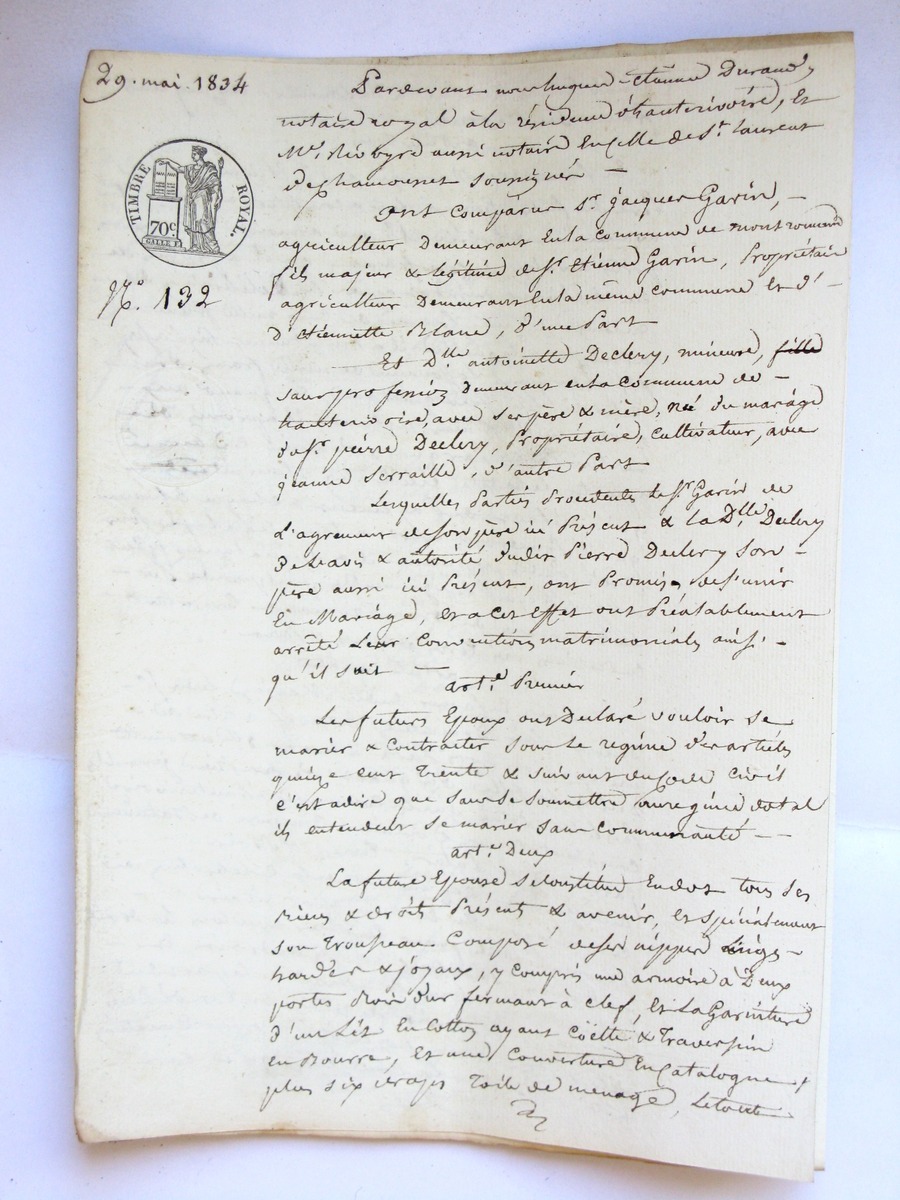 29. mai. 1834
TIMBRE ROYAL.
70c.
N.o 132
Pardevant nous hugues Etienne Durand,
notaire royal à la résidence d'hauterivoire, Et
Me. aussi notaire En celle de St. Laurent
De Chamousset soussignés —
Ont Comparus Sr. jacques Garin, —
agriculteur Demeurant En la commune de montromand
fils majeur & légitime de Sr. Etienne Garin, Propriétaire
agriculteur Demeurant En la même commune Et d'
d'Etiennette Blanc, D'une Part
Et Dlle. antoinette Declery, mineure, fille
sans profession demeurant en la commune de —
hauterivoire, avec ses père & mère, née du mariage
du Sr. pierre Declery, Propriétaire, Cultivateur, avec
jeanne Serraille, D'autre Part
Lesquelles Parties Procédentes le Sr. Garin de
L'agrement de son père ici Présent & la Dlle. Declery
De l'avis & autorité dudit Pierre Declery son —
père aussi ici Présent, ont Promis de s'unir
En Mariage, et a cet Effet ont Préalablement
arrêté Leur Convention matrimoniales ainsi —
qu'il suit —
art.e Premier
Les futurs Epoux ont Déclaré vouloir se
marier & Contracter sous le regime des articles
quinze cent Trente & suivant du Code Civil
c'est adire que sans se soumettre au regime dotal
ils entendent se marier sans communauté — —
art.e Deux
La future Epouse se Constitue En dot tous ses
Biens & droits Présents & avenir, Et spécialement
son Trousseau Composé de ses nippes linges —
hardes & joyaux, y compris une armoire à Deux
portes Bois dur fermant à clef, Et La Garniture
d'un Lit En Cotton ayant Coëtte & Traversin
en Bourre, Et une Couverture En Catalogne,
plus six draps Toile de menage, Le tout